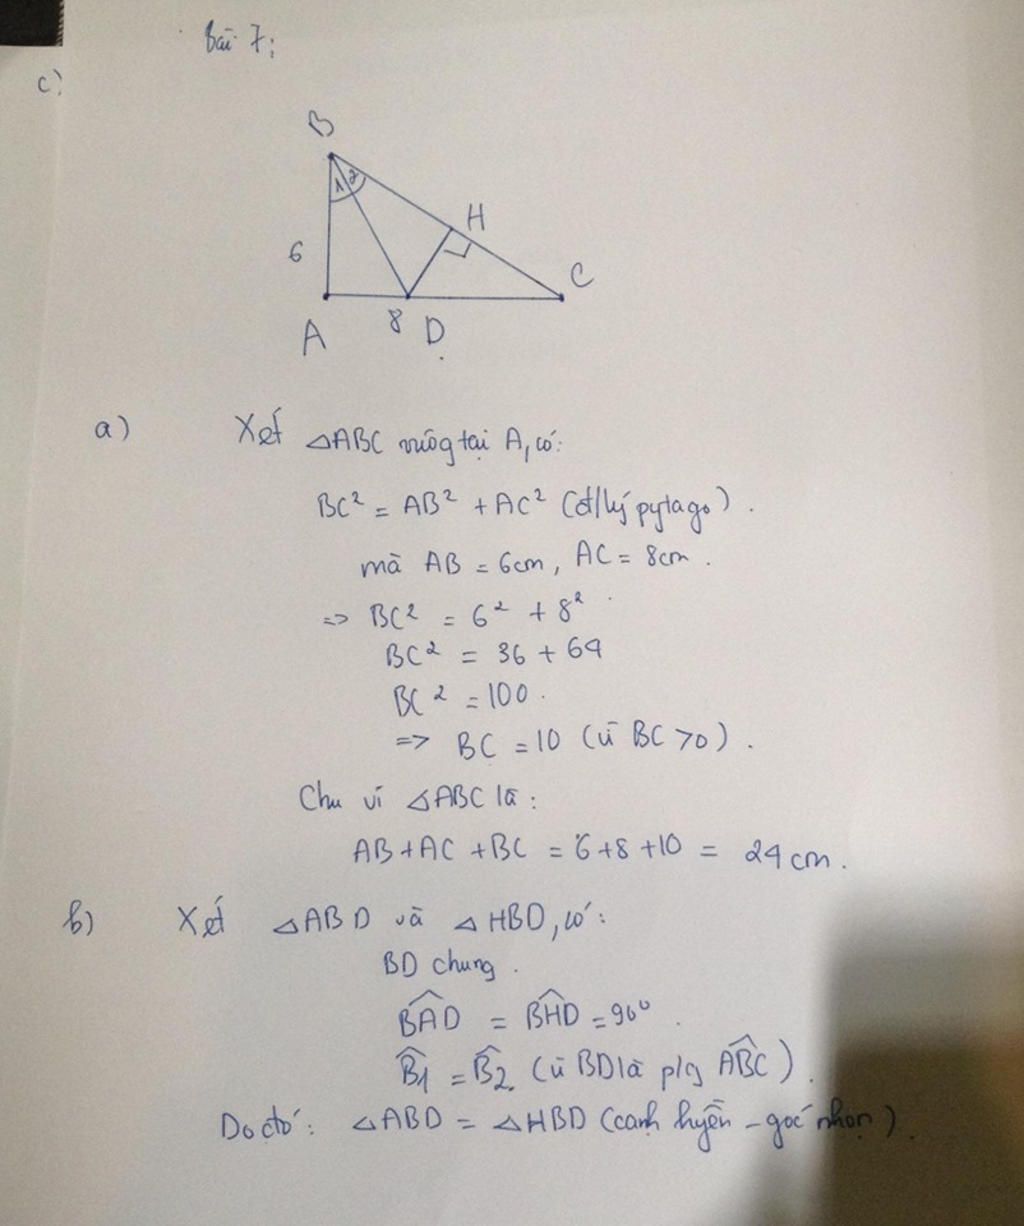 Bài 7:
c)
B
1 2
H
6
C
A
8 D
a) Xét △ABC vuông tại A, có:
BC² = AB² + AC² (đ/lý pytago).
mà AB = 6cm, AC = 8cm.
=> BC² = 6² + 8²
BC² = 36 + 64
BC² = 100.
=> BC = 10 (vì BC >0).
Chu vi △ABC là:
AB + AC + BC = 6+8+10 = 24cm.
b) Xét △ABD và △HBD, có:
BD chung.
B̂AD = B̂HD = 90°.
B̂1 = B̂2. (vì BD là p/g ÂBC).
Do đó: △ABD = △HBD (cạnh huyền - góc nhọn).